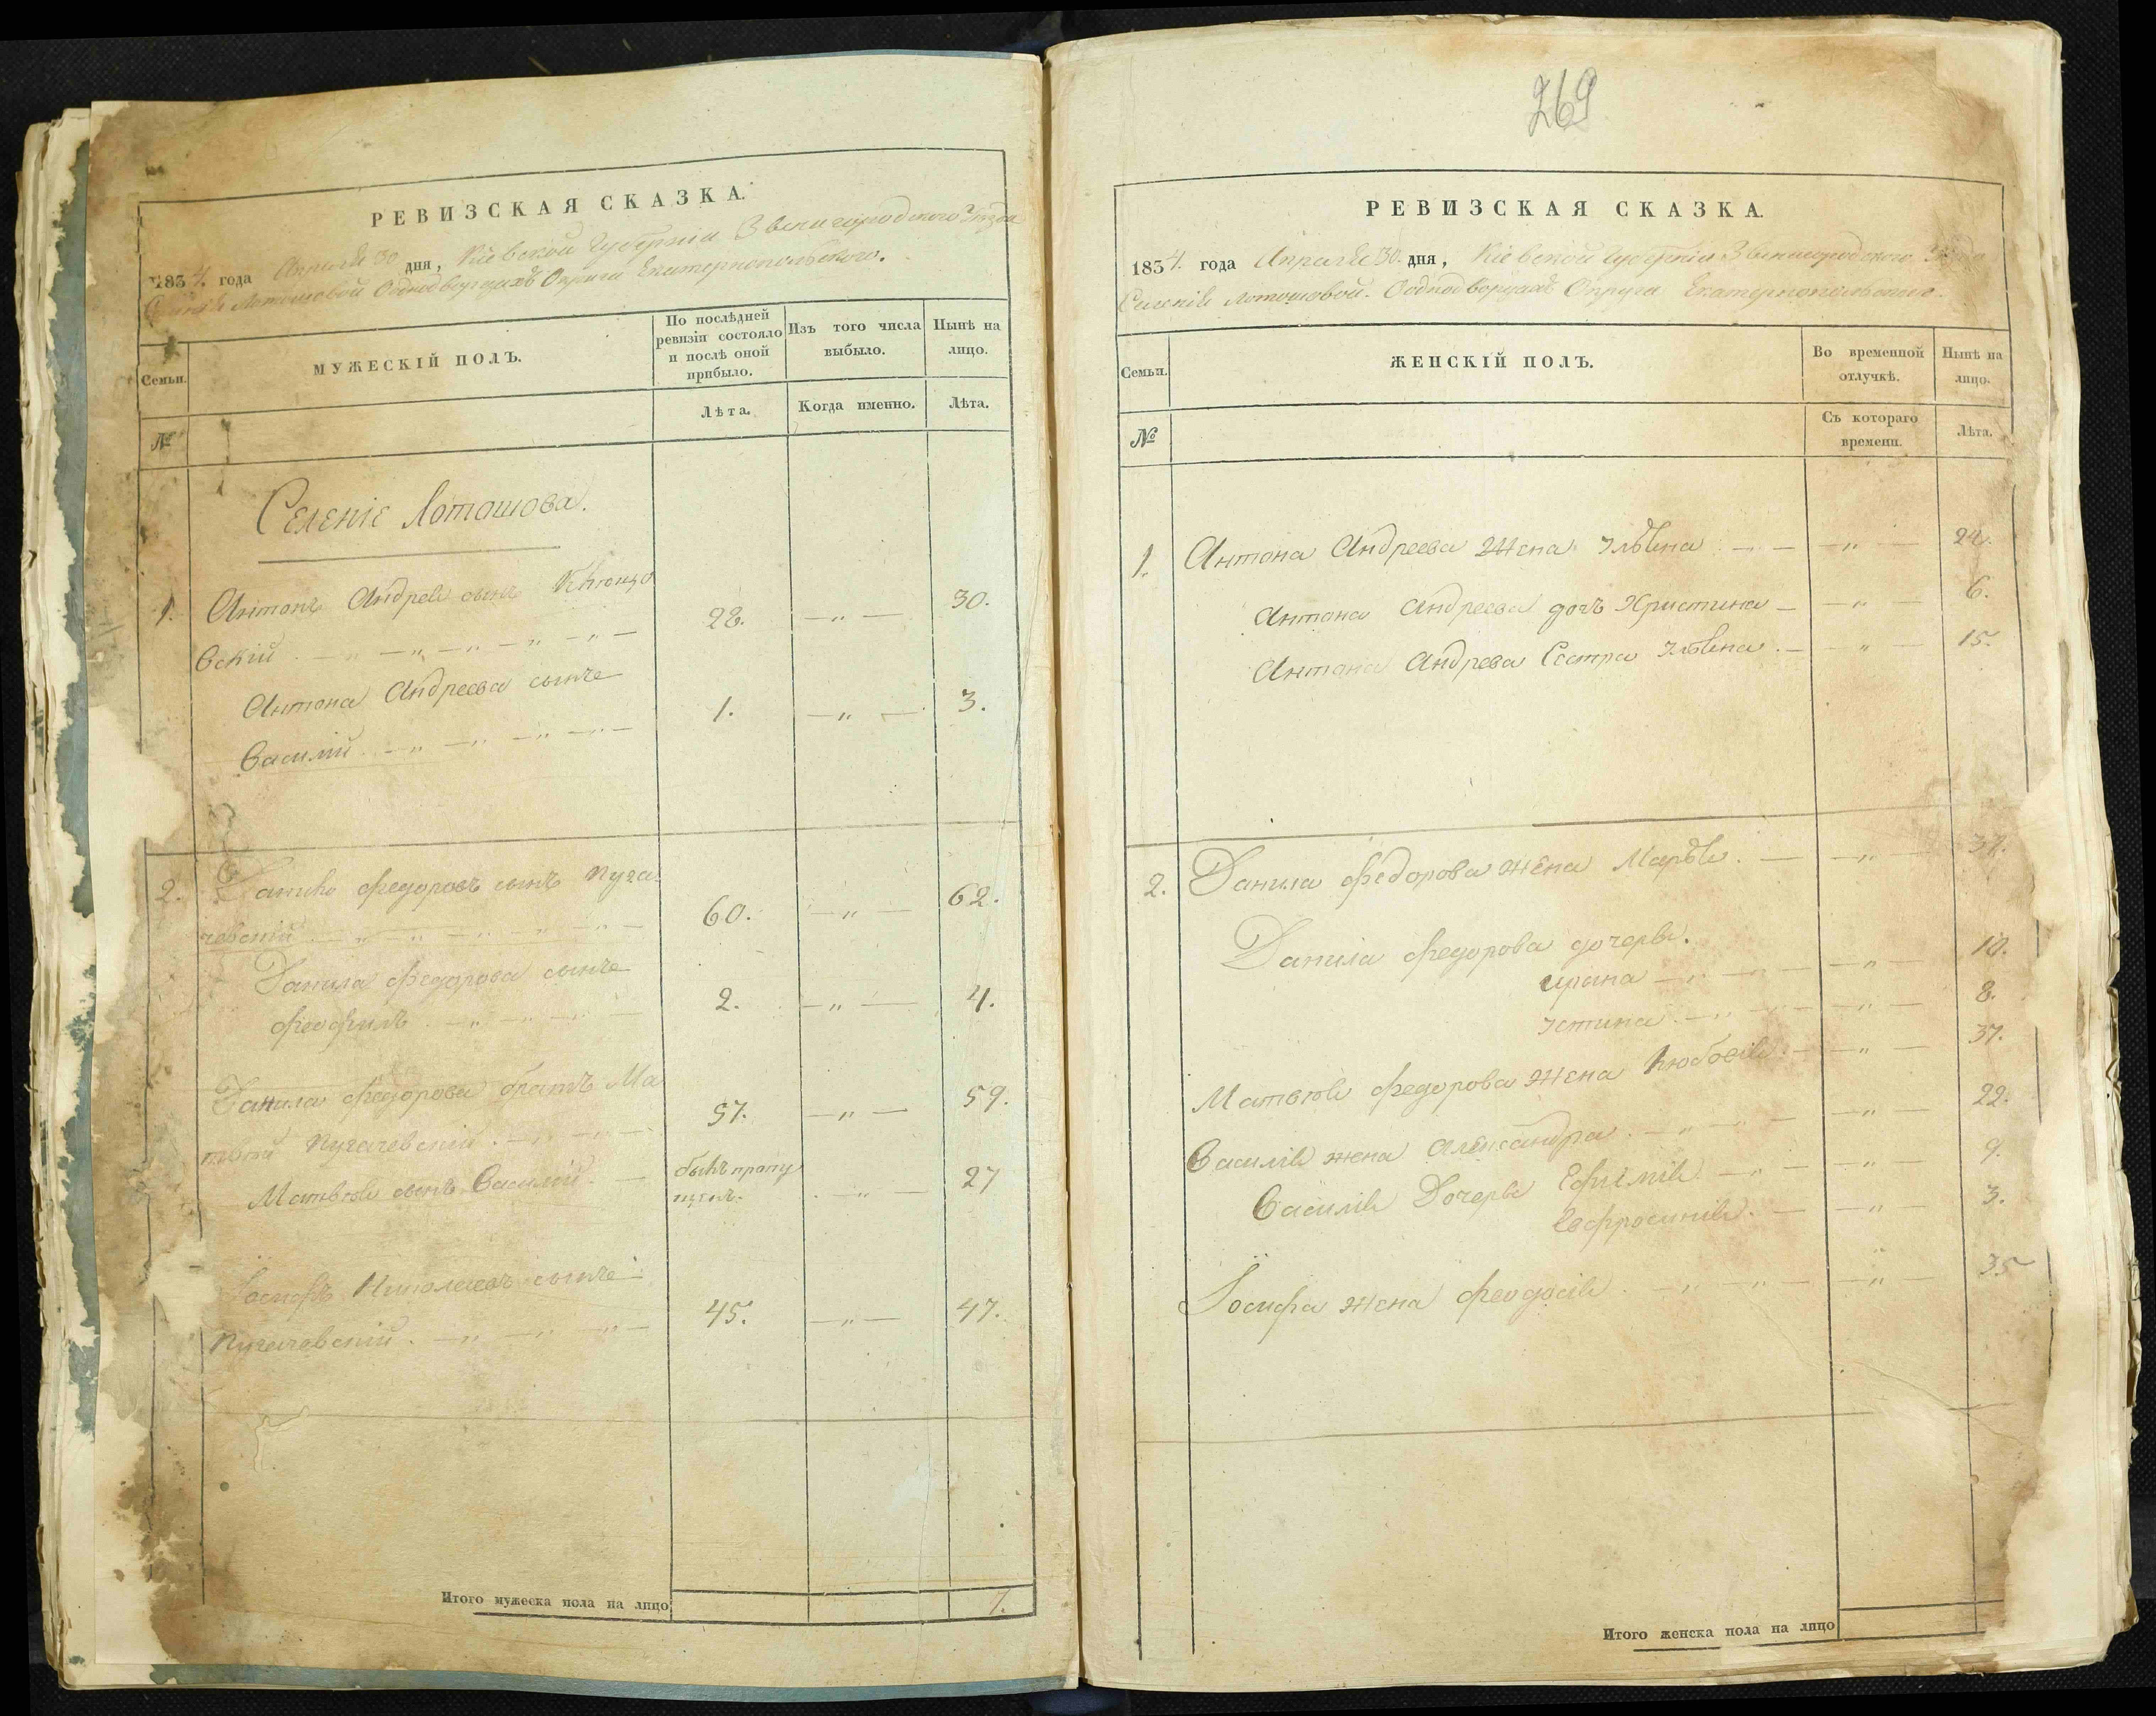 РЕВИЗСКАЯ СКАЗКА.
1834 года Апреля 30 дня, Кіевской Губерніи Звенигородского Уѣзда
Лоташовой Однодворцахъ Округи Екатеринопольского.
Семьи.
МУЖЕСКІЙ ПОЛЪ.
По послѣдней ревизіи состояло и послѣ оной прибыло.
Изъ того числа выбыло.
Нынѣ на лицо.
№
Лѣта.
Когда именно.
Лѣта.
Селеніе Лоташова.
1. Антонъ Андреев сынъ
вскій 28. — " — 30.
Антона Андреева сынъ
Василій 1. — " — 3.
2. Данило Федоровъ сынъ Пуга-
чевскій 60. — " — 62.
Данила Федорова сынъ
Феофилъ 2. — " — 4.
Данила Федорова братъ Ма
твѣй Пугачевскій 57. — " — 59.
Матвѣя сынъ Василій. — былъ пропу
щенъ. — " — 27
Іосифъ сынъ
Пугачевскій. 45. — " — 47.
Итого мужеска пола на лицо 7.
269
РЕВИЗСКАЯ СКАЗКА.
1834. года Апреля 30. дня, Кіевской Губерніи Звенигородского Уѣзда
Селенія Лоташовой. Однодворцахъ Округи Екатеринопольского.
Семьи.
ЖЕНСКІЙ ПОЛЪ.
Во временной отлучкѣ.
Нынѣ на лицо.
№
Съ котораго времени.
Лѣта.
1. Антона Андреева Жена — " — 24.
Антона Андреева дочь Христина — — " — 6.
Антона Андрева Сестра — " — 15.
2. Данила Федорова жена Марья. — — " — 37.
Данила Федорова дочери.
Ирына — " — 10.
Устина. — " — 8.
Матвѣя Федорова жена Любовія — " — 37.
Василія жена Александра. — " — 22.
Василія Дочери Ефимія — " — 9.
Евфросинія. — — " — 3.
Іосифа жена Феодосія — " — 35
Итого женска пола на лицо